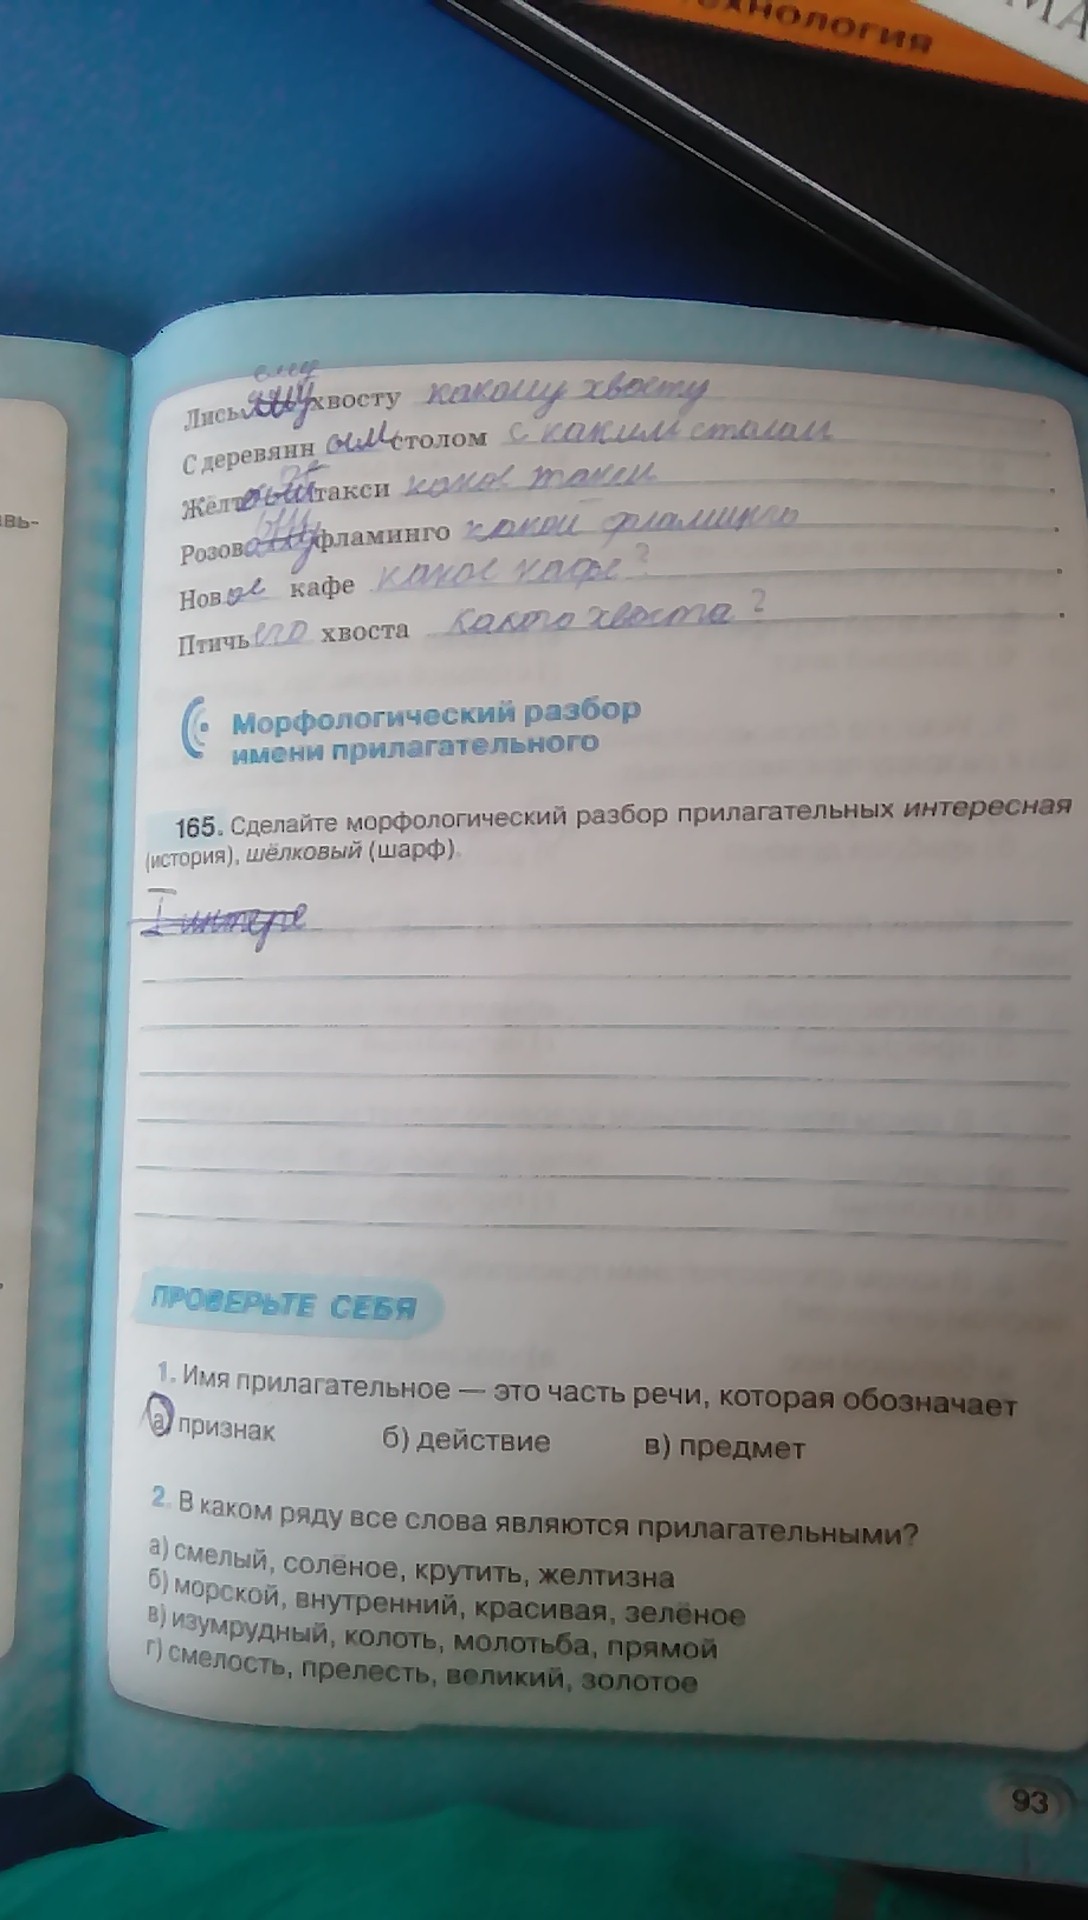 ехнология
МА
вь-
ему
Лисьему хвосту какому хвосту
С деревянн ым столом с каким столом
Жёлт такси какое такси
Розов фламинго какой фламинго
Нов ое кафе какое кафе?
Птичь его хвоста какого хвоста?
Морфологический разбор
имени прилагательного
165. Сделайте морфологический разбор прилагательных интересная
(история), шёлковый (шарф).
I интере
ПРОВЕРЬТЕ СЕБЯ
1. Имя прилагательное — это часть речи, которая обозначает
а) признак б) действие в) предмет
2. В каком ряду все слова являются прилагательными?
а) смелый, солёное, крутить, желтизна
б) морской, внутренний, красивая, зелёное
в) изумрудный, колоть, молотьба, прямой
г) смелость, прелесть, великий, золотое
93